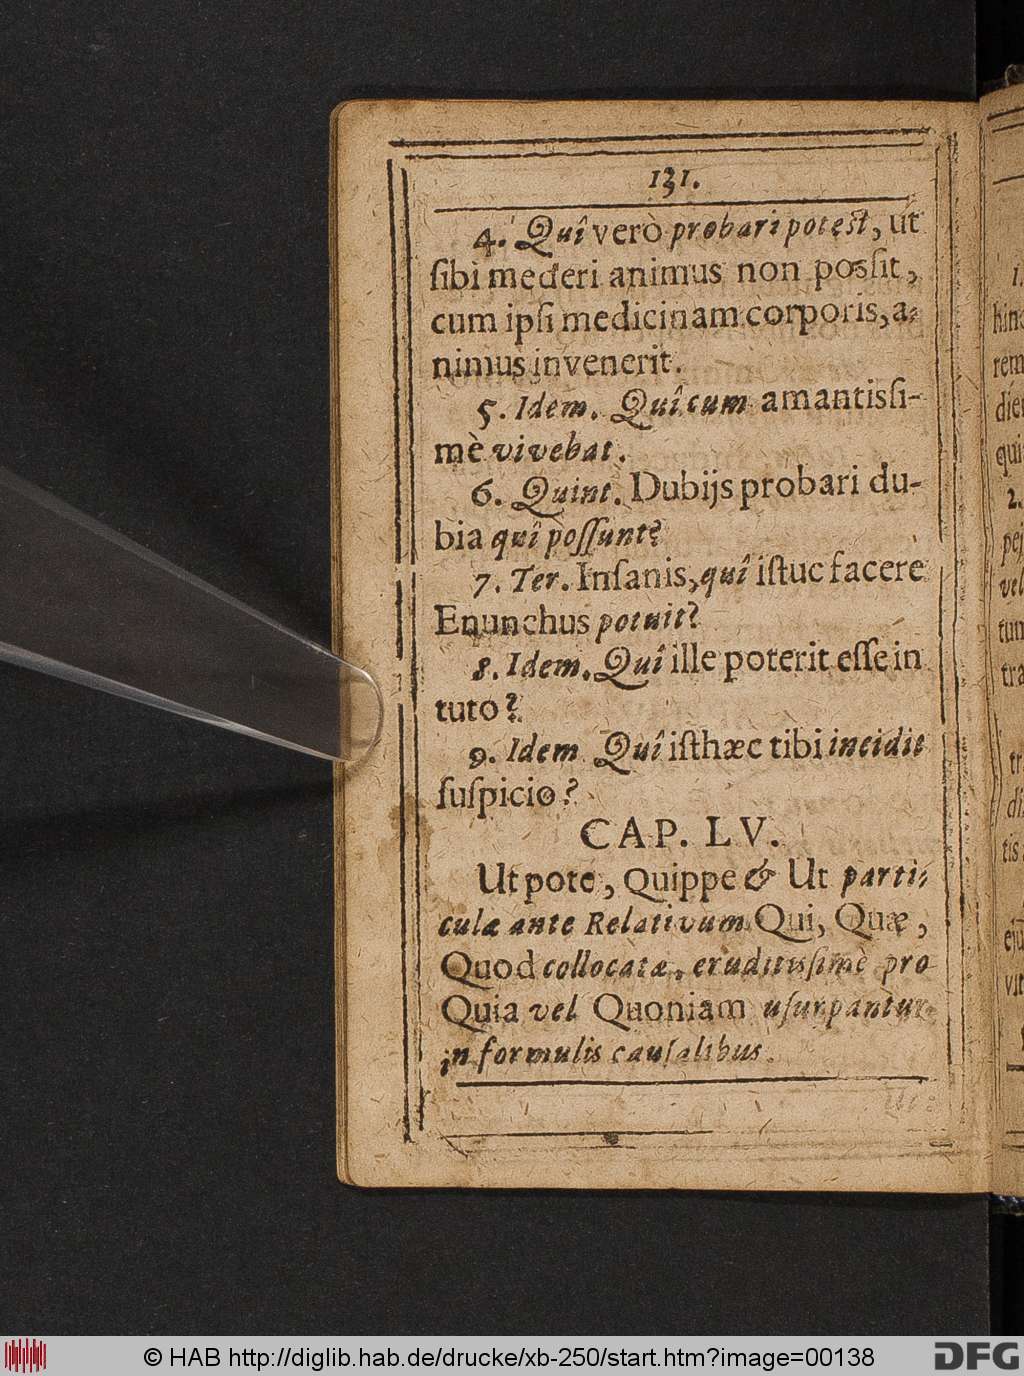 131.
4. Quî verò probari potest, ut
ſibi mederi animus non possit,
cum ipſi medicinam corporis, a-
nimus invenerit.
5. Idem. Quî cum amantissi-
mè vivebat.
6. Quint. Dubijs probari du-
bia quî poſſunt?
7. Ter. Inſanis, quî iſtuc facere
Enunchus potuit?
8. Idem. Quî ille poterit eſſe in
tuto?
9. Idem Quî iſthæc tibi incidit
ſuſpicio?
CAP. LV.
Ut pote, Quippe & Ut parti-
culæ ante Relativum Qui, Quæ,
Quod collocatæ, eruditiſſimè pro
Quia vel Quoniam uſurpantur
in formulis cauſalibus.
© HAB http://diglib.hab.de/drucke/xb-250/start.htm?image=00138
DFG